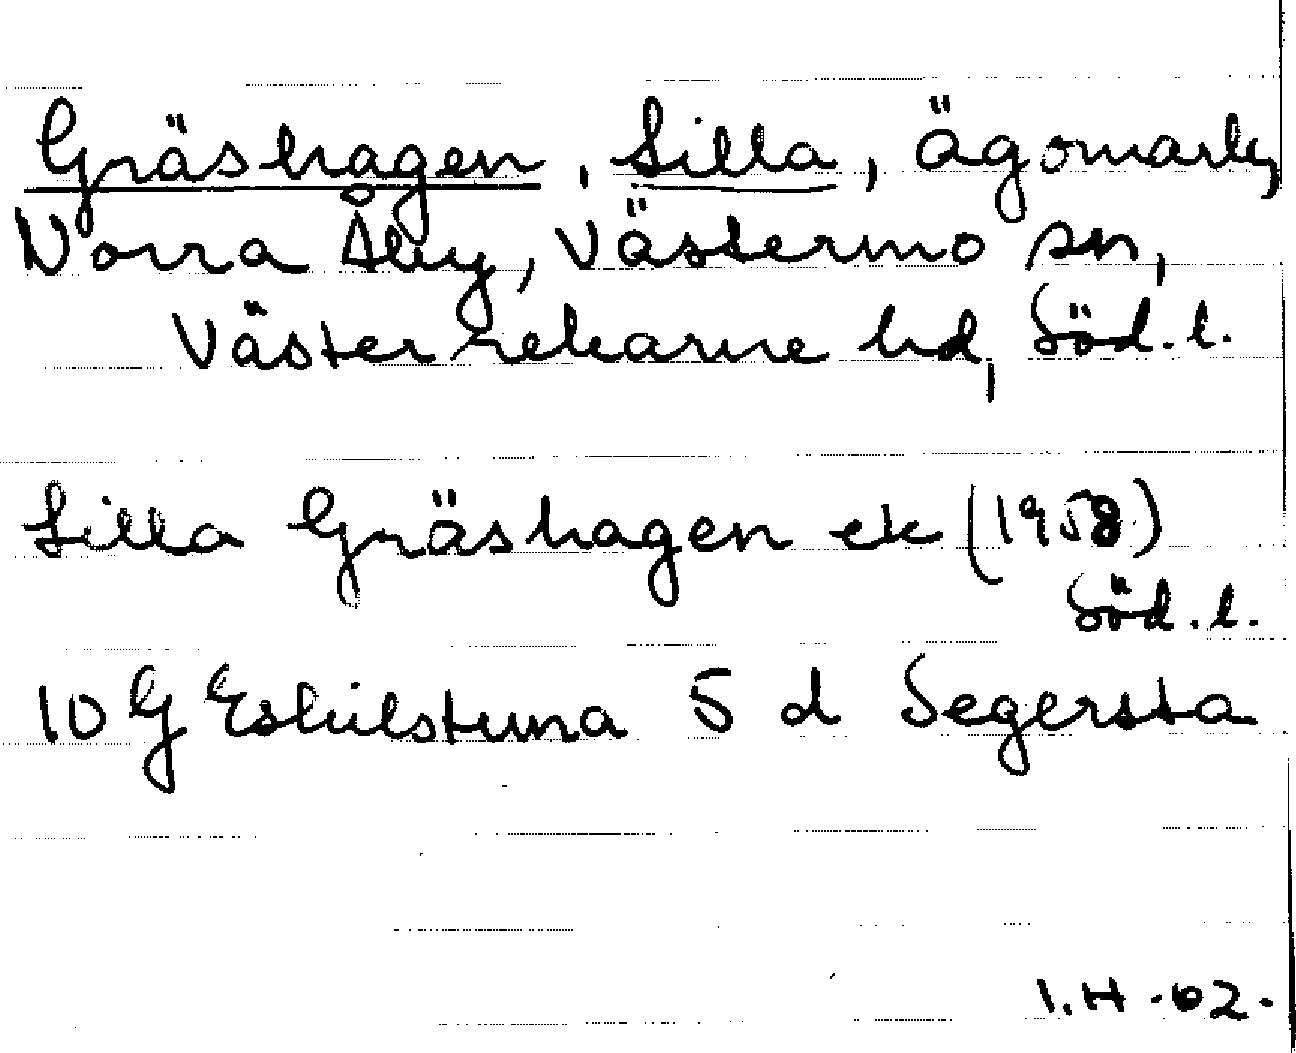 Gräshagen, Lilla, ägomark,
Norra Åby, Västermo sn,
Västerrekarne hd, Söd. l.
Lilla Gräshagen ek (1958)
Söd. l.
10 G Eskilstuna 5 d Segersta
I.H -62-